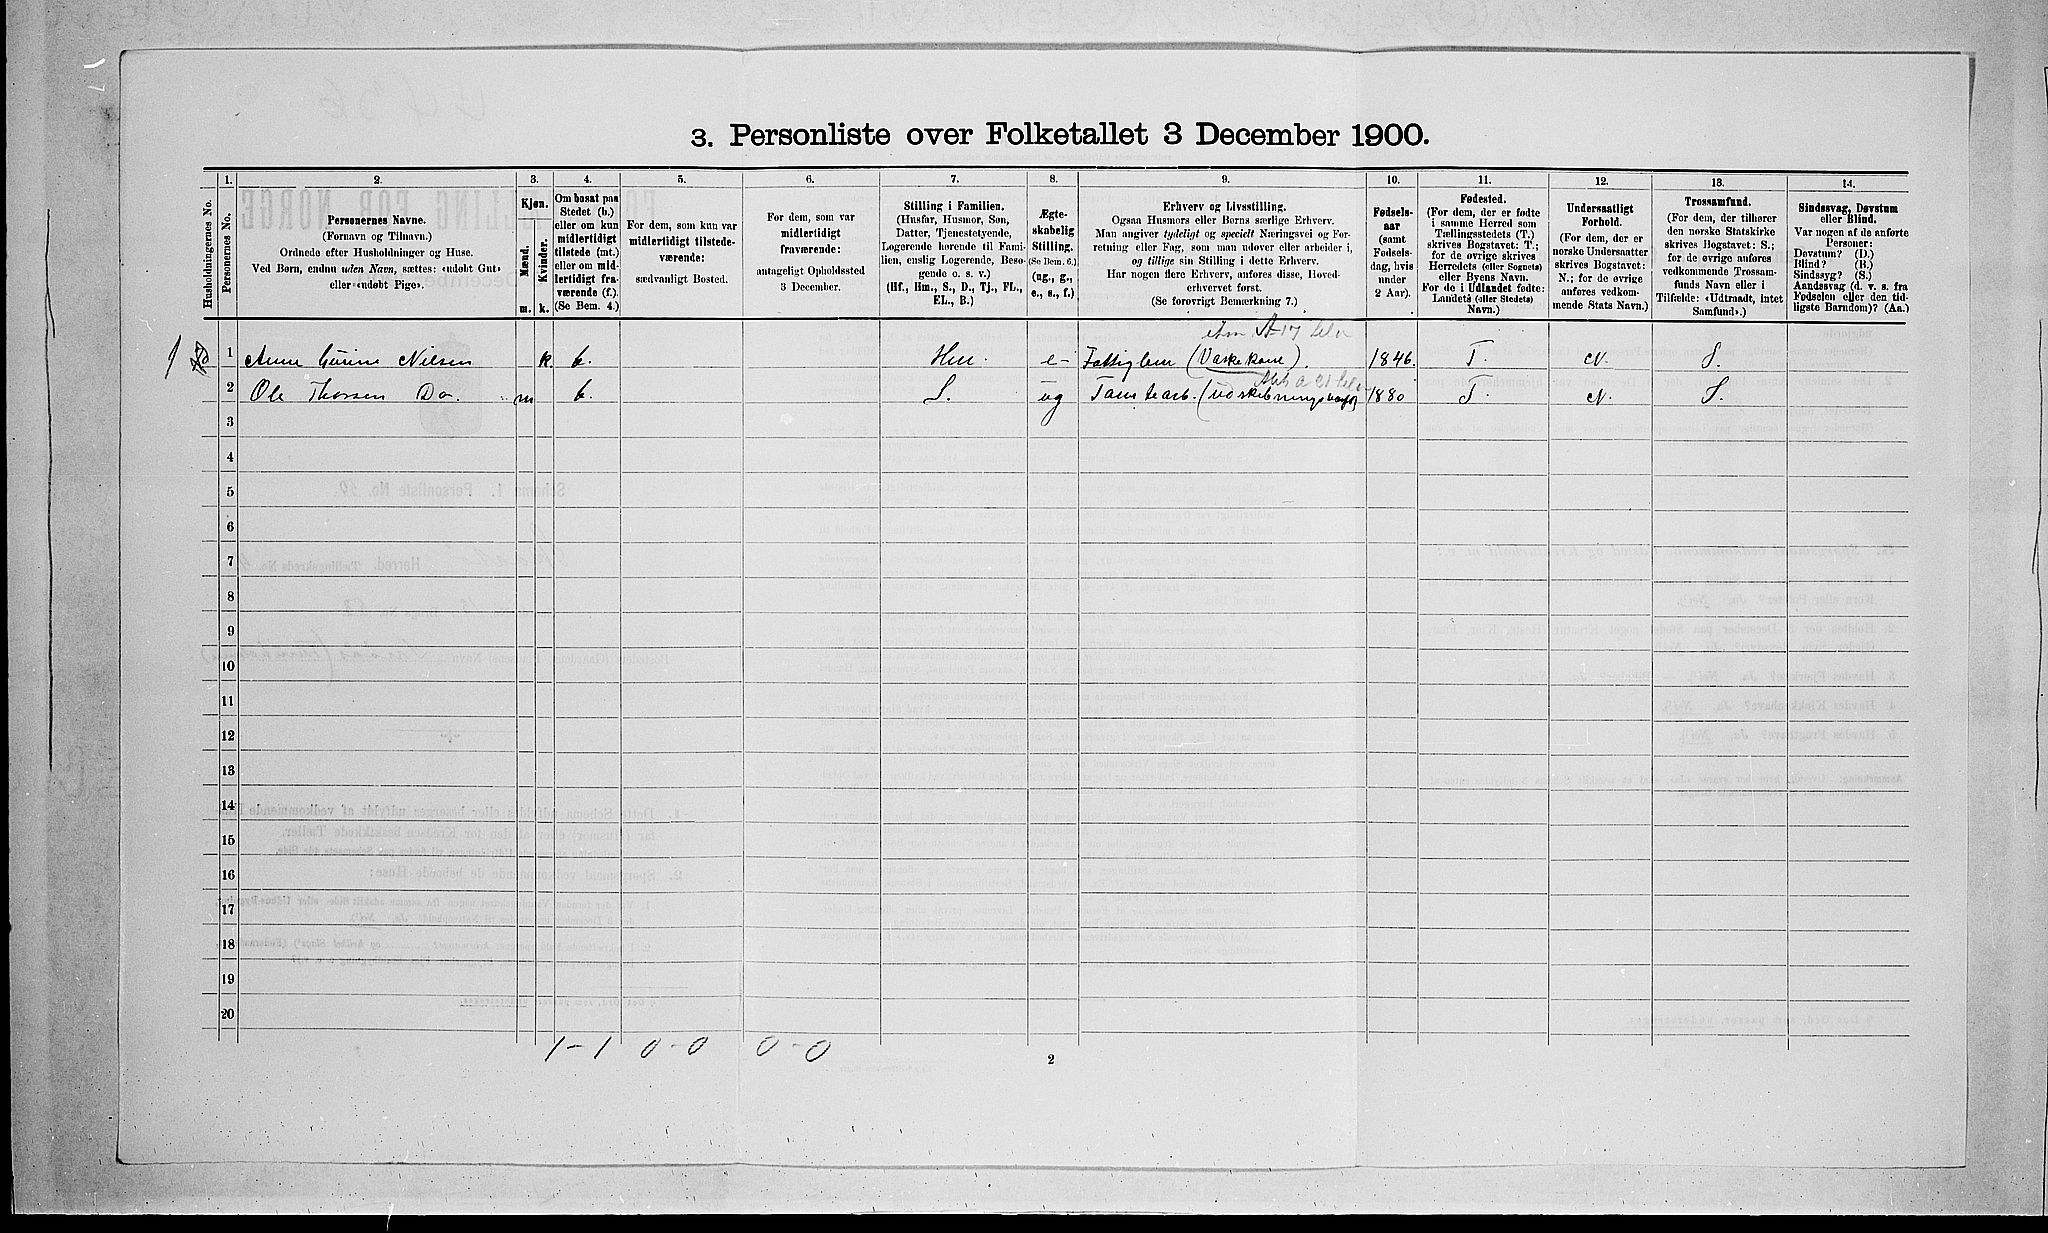 3. Personliste over Folketallet 3 December 1900.
Husholdningernes No.
1.
Personernes No.
2.
Personernes Navne.
(Fornavn og Tilnavn.)
Ordnede efter Husholdninger og Huse.
Ved Børn, endnu uden Navn, sættes: «udøbt Gut»
eller «udøbt Pige».
3.
Kjøn.
Mænd.
m.
Kvinder.
k.
4.
Om bosat paa
Stedet (b.)
eller om kun
midlertidigt
tilstede (mt.)
eller om mid-
lertidigt fra-
værende (f.)
(Se Bem. 4.)
5.
For dem, som kun var
midlertidigt tilstede-
værende:
sædvanligt Bosted.
6.
For dem, som var
midlertidigt
fraværende:
antageligt Opholdssted
3 December.
7.
Stilling i Familien.
(Husfar, Husmor, Søn,
Datter, Tjenestetyende,
Logerende hørende til Fami-
lien, enslig Logerende, Besø-
gende o. s. v.)
(Hf., Hm., S., D., Tj., FL.,
EL., B.)
8.
Ægte-
skabelig
Stilling.
(Se Bem. 6.)
(ug., g.,
e., s., f.)
9.
Erhverv og Livsstilling.
Ogsaa Husmors eller Børns særlige Erhverv.
Man angiver tydeligt og specielt Næringsvei og For-
retning eller Fag, som man udøver eller arbeider i,
og tillige sin Stilling i dette Erhverv.
Har nogen flere Erhverv, anføres disse, Hoved-
erhvervet først.
(Se forøvrigt Bemerkning 7.)
10.
Fødsels-
aar
(samt
Fødsels-
dag, hvis
under
2 Aar).
11.
Fødested.
(For dem, der er fødte
i samme Herred som
Tællingsstedets (T.)
skrives Bogstavet: T.;
for de øvrige skrives
Herredets (eller Sognets)
eller Byens Navn.
For de i Udlandet fødte:
Landets (eller Stedets)
Navn.)
12.
Undersaatligt
Forhold.
(For dem, der er
norske Undersaatter
skrives Bogstavet:
N.; for de øvrige
anføres vedkom-
mende Stats Navn.)
13.
Trossamfund.
(For dem, der tilhører
den norske Statskirke
skrives Bogstavet: S.;
for de øvrige anføres
vedkommende Trossam-
funds Navn eller i
Tilfælde: «Udtraadt, intet
Samfund».)
14.
Sindssvag, Døvstum
eller Blind.
Var nogen af de anførte
Personer:
Døvstum? (D.)
Blind? (B.)
Sindssyg? (S.)
Aandssvag (d. v. s. fra
Fødselen eller den tid-
ligste Barndom)? (Aa.)
1 1 Anne Gurine Nilsen k b. Hm. e- Fattiglem (Vaskekone). 1846. T. N. S.
2 Ole Thorsen Do. m b. S. ug Tomtearb. 1880 T. N. S.
3
4
5
6
7
8
9
10
11
12
13
14
15
16
17
18
19
20
1-1 0-0 0-0
2